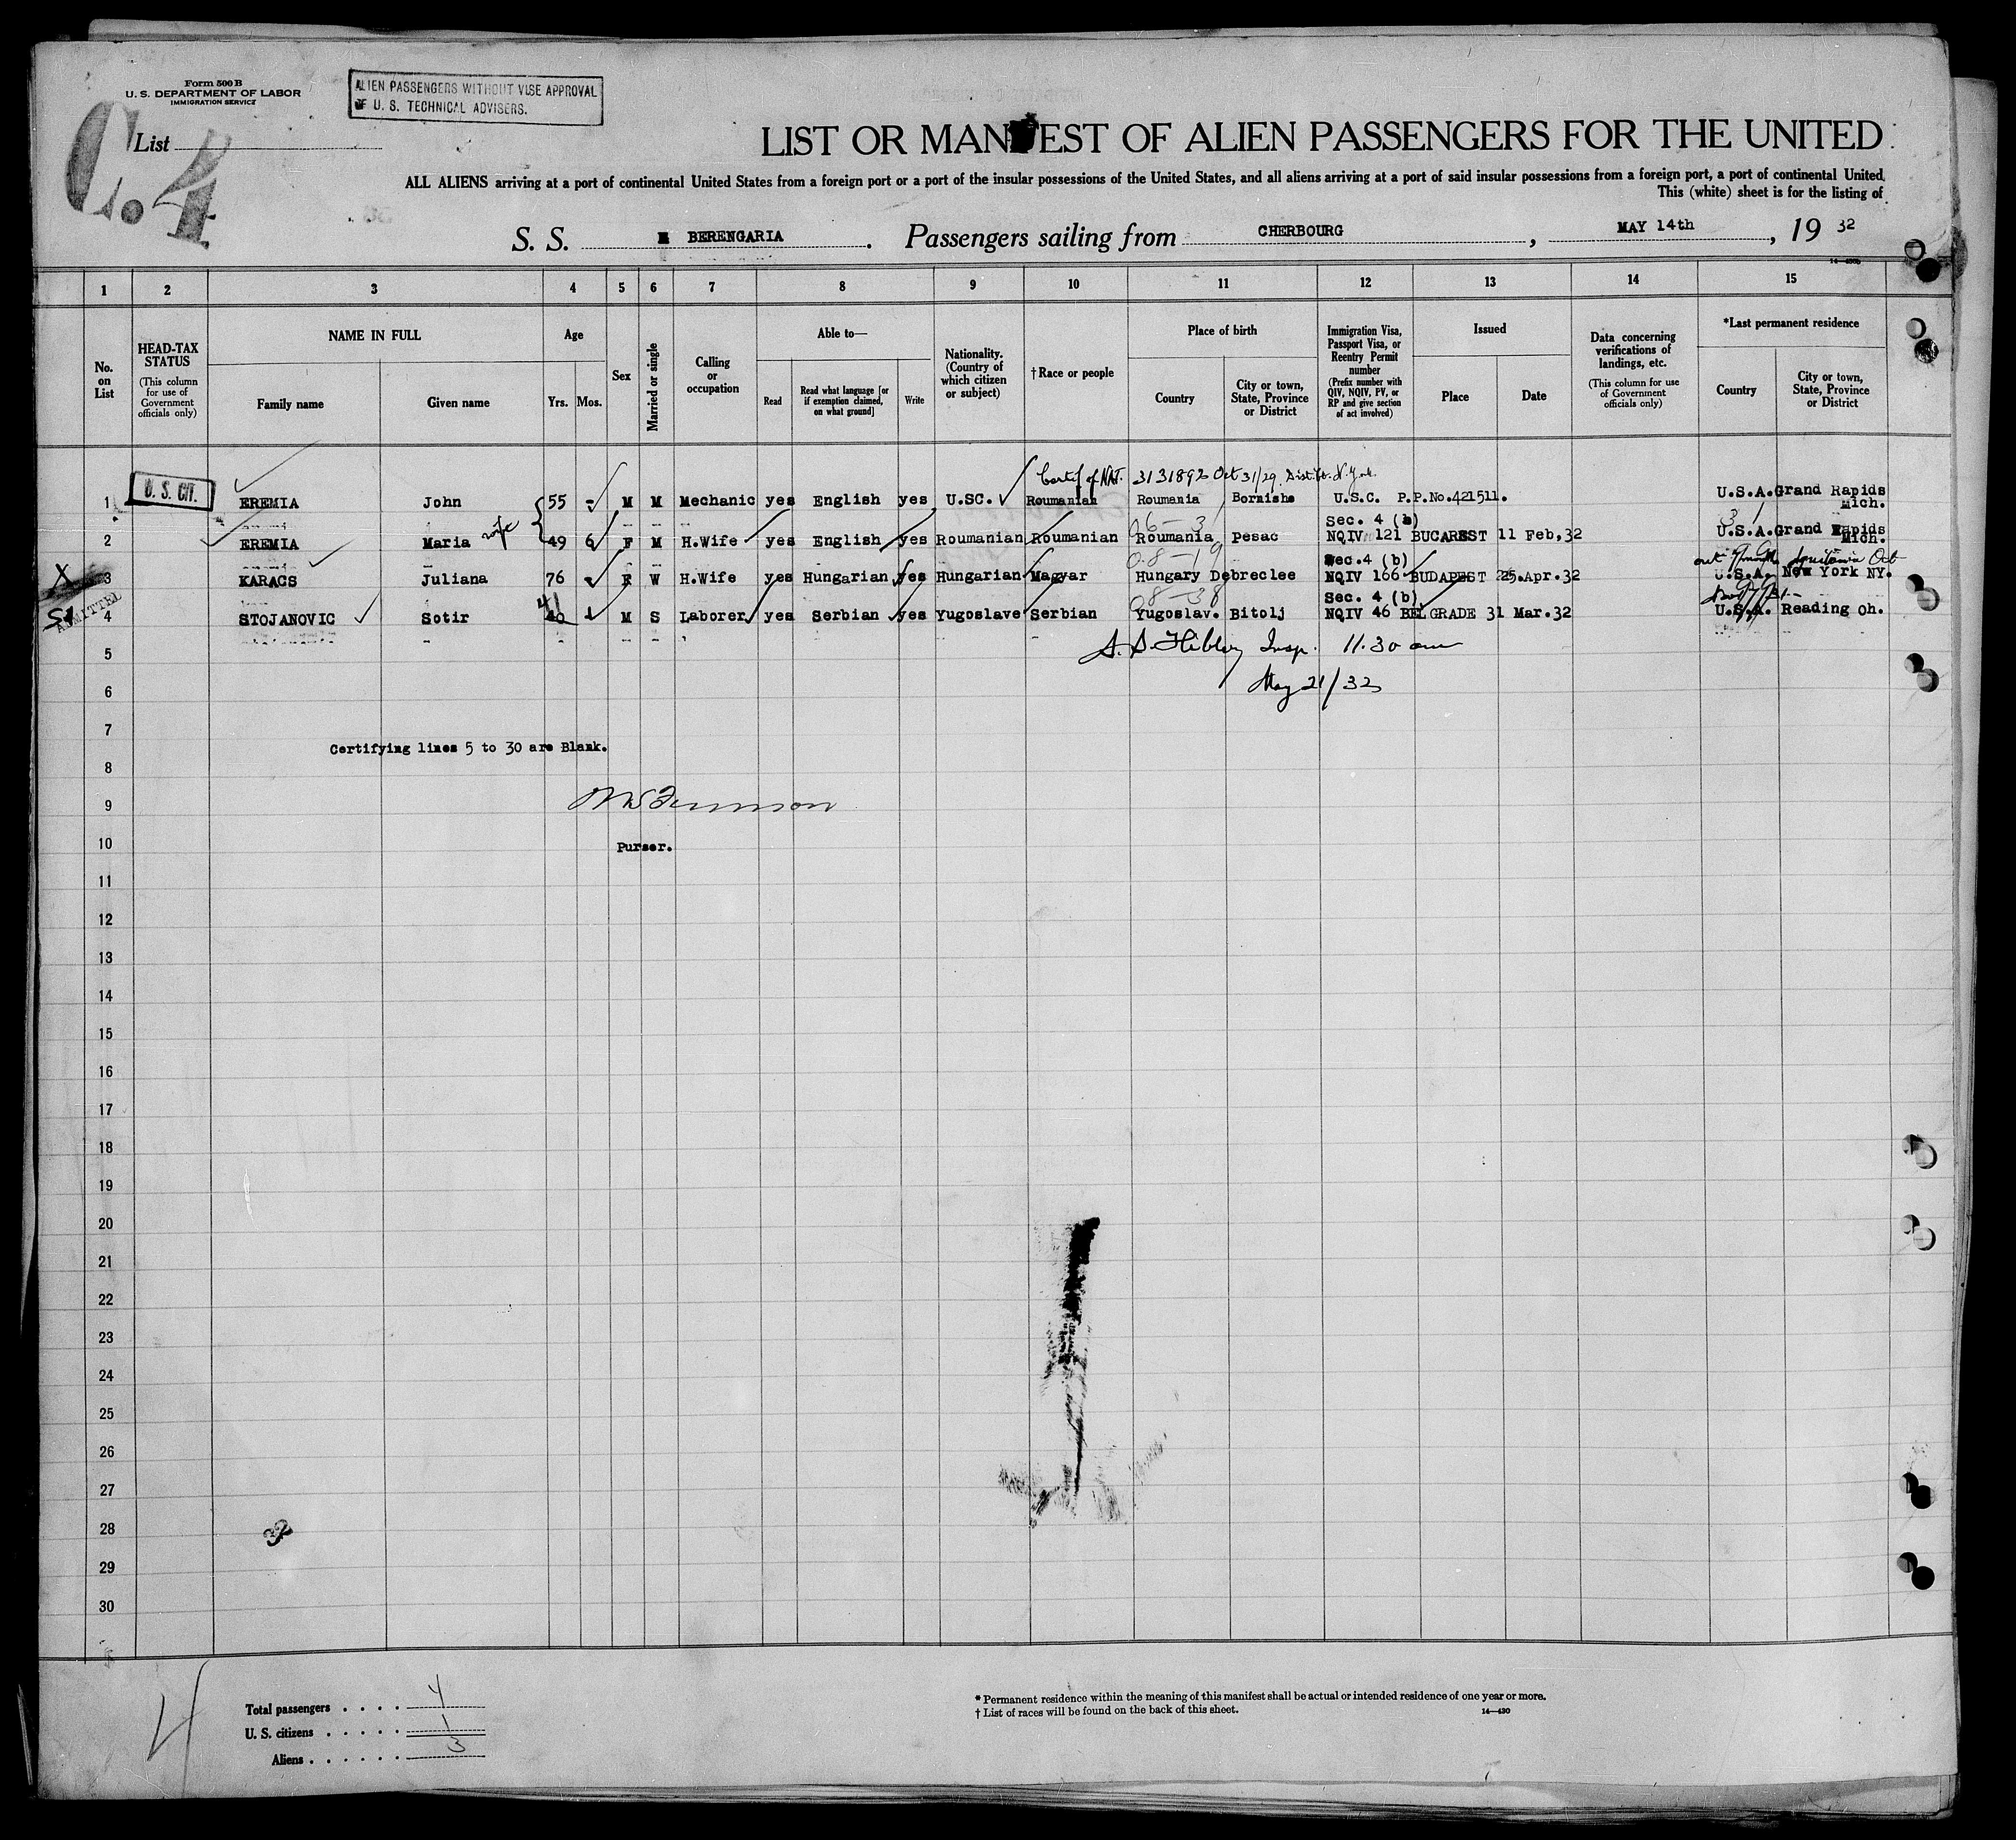 Form 500 B
U. S. DEPARTMENT OF LABOR
IMMIGRATION SERVICE
ALIEN PASSENGERS WITHOUT VISE APPROVAL
OF U. S. TECHNICAL ADVISERS.
List
C.4
LIST OR MANIFEST OF ALIEN PASSENGERS FOR THE UNITED
ALL ALIENS arriving at a port of continental United States from a foreign port or a port of the insular possessions of the United States, and all aliens arriving at a port of said insular possessions from a foreign port, a port of continental United
This (white) sheet is for the listing of
S. S. BERENGARIA. Passengers sailing from CHERBOURG, MAY 14th, 19 32
1 2 3 4 5 6 7 8 9 10 11 12 13 14 15
No. on List
HEAD-TAX STATUS
(This column for use of Government officials only)
NAME IN FULL
Family name
Given name
Age
Yrs. Mos.
Sex
Married or single
Calling or occupation
Able to—
Read
Read what language [or if exemption claimed, on what ground]
Write
Nationality. (Country of which citizen or subject)
†Race or people
Place of birth
Country
City or town, State, Province or District
Immigration Visa, Passport Visa, or Reentry Permit number
(Prefix number with QIV, NQIV, PV, or RP and give section of act involved)
Issued
Place
Date
Data concerning verifications of landings, etc.
(This column for use of Government officials only)
*Last permanent residence
Country
City or town, State, Province or District
Certif of NAT. 3131892 Oct 31/29 Dist Ct. N. York
1 U. S. CIT. EREMIA John 55 - M M Mechanic yes English yes U.SC. Roumanian Roumania Bornishe U.S.C. P.P.No.421511. U.S.A. Grand Rapids Mich.
06-3 Sec. 4 (b)
2 EREMIA Maria wife 49 6 F M H.Wife yes English yes Roumanian Roumanian Roumania Pesac NQIV 121 BUCAREST 11 Feb,32 U.S.A. Grand Rapids Mich.
08-19 Sec.4 (b)
X 3 KARACS Juliana 76 - F W H.Wife yes Hungarian yes Hungarian Magyar Hungary Debreclee NQIV 166 BUDAPEST 25.Apr.32 U.S.A. New York NY.
ADMITTED
41 08-38 Sec. 4 (b)
4 STOJANOVIC Sotir 40 M S Laborer yes Serbian yes Yugoslave Serbian Yugoslav. Bitolj NQIV 46 BELGRADE 31 Mar.32 U.S.A. Reading Oh.
5 Insp. 11.30 am
6 May 21/32
7
Certifying lines 5 to 30 are Blank.
8
9
10 Purser.
11
12
13
14
15
16
17
18
19
20
21
22
23
24
25
26
27
28
29
30
4
Total passengers . . . . 4
U. S. citizens . . . . . 1
Aliens . . . . . . 3
* Permanent residence within the meaning of this manifest shall be actual or intended residence of one year or more.
† List of races will be found on the back of this sheet.
14—430